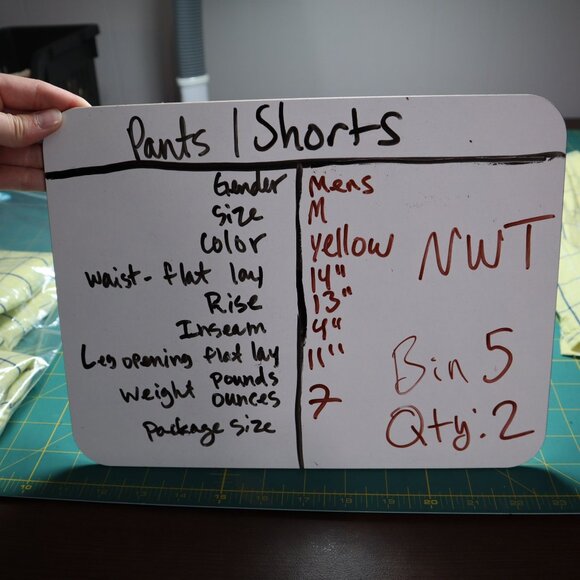 Pants / Shorts
Gender Mens
Size M
Color yellow
NWT
waist - flat lay 14"
Rise 13"
Inseam 4"
Leg opening flat lay 11"
Weight pounds
ounces 7
Package size
Bin 5
Qty: 2
10 15 16 17 18 19 20 21 22 23